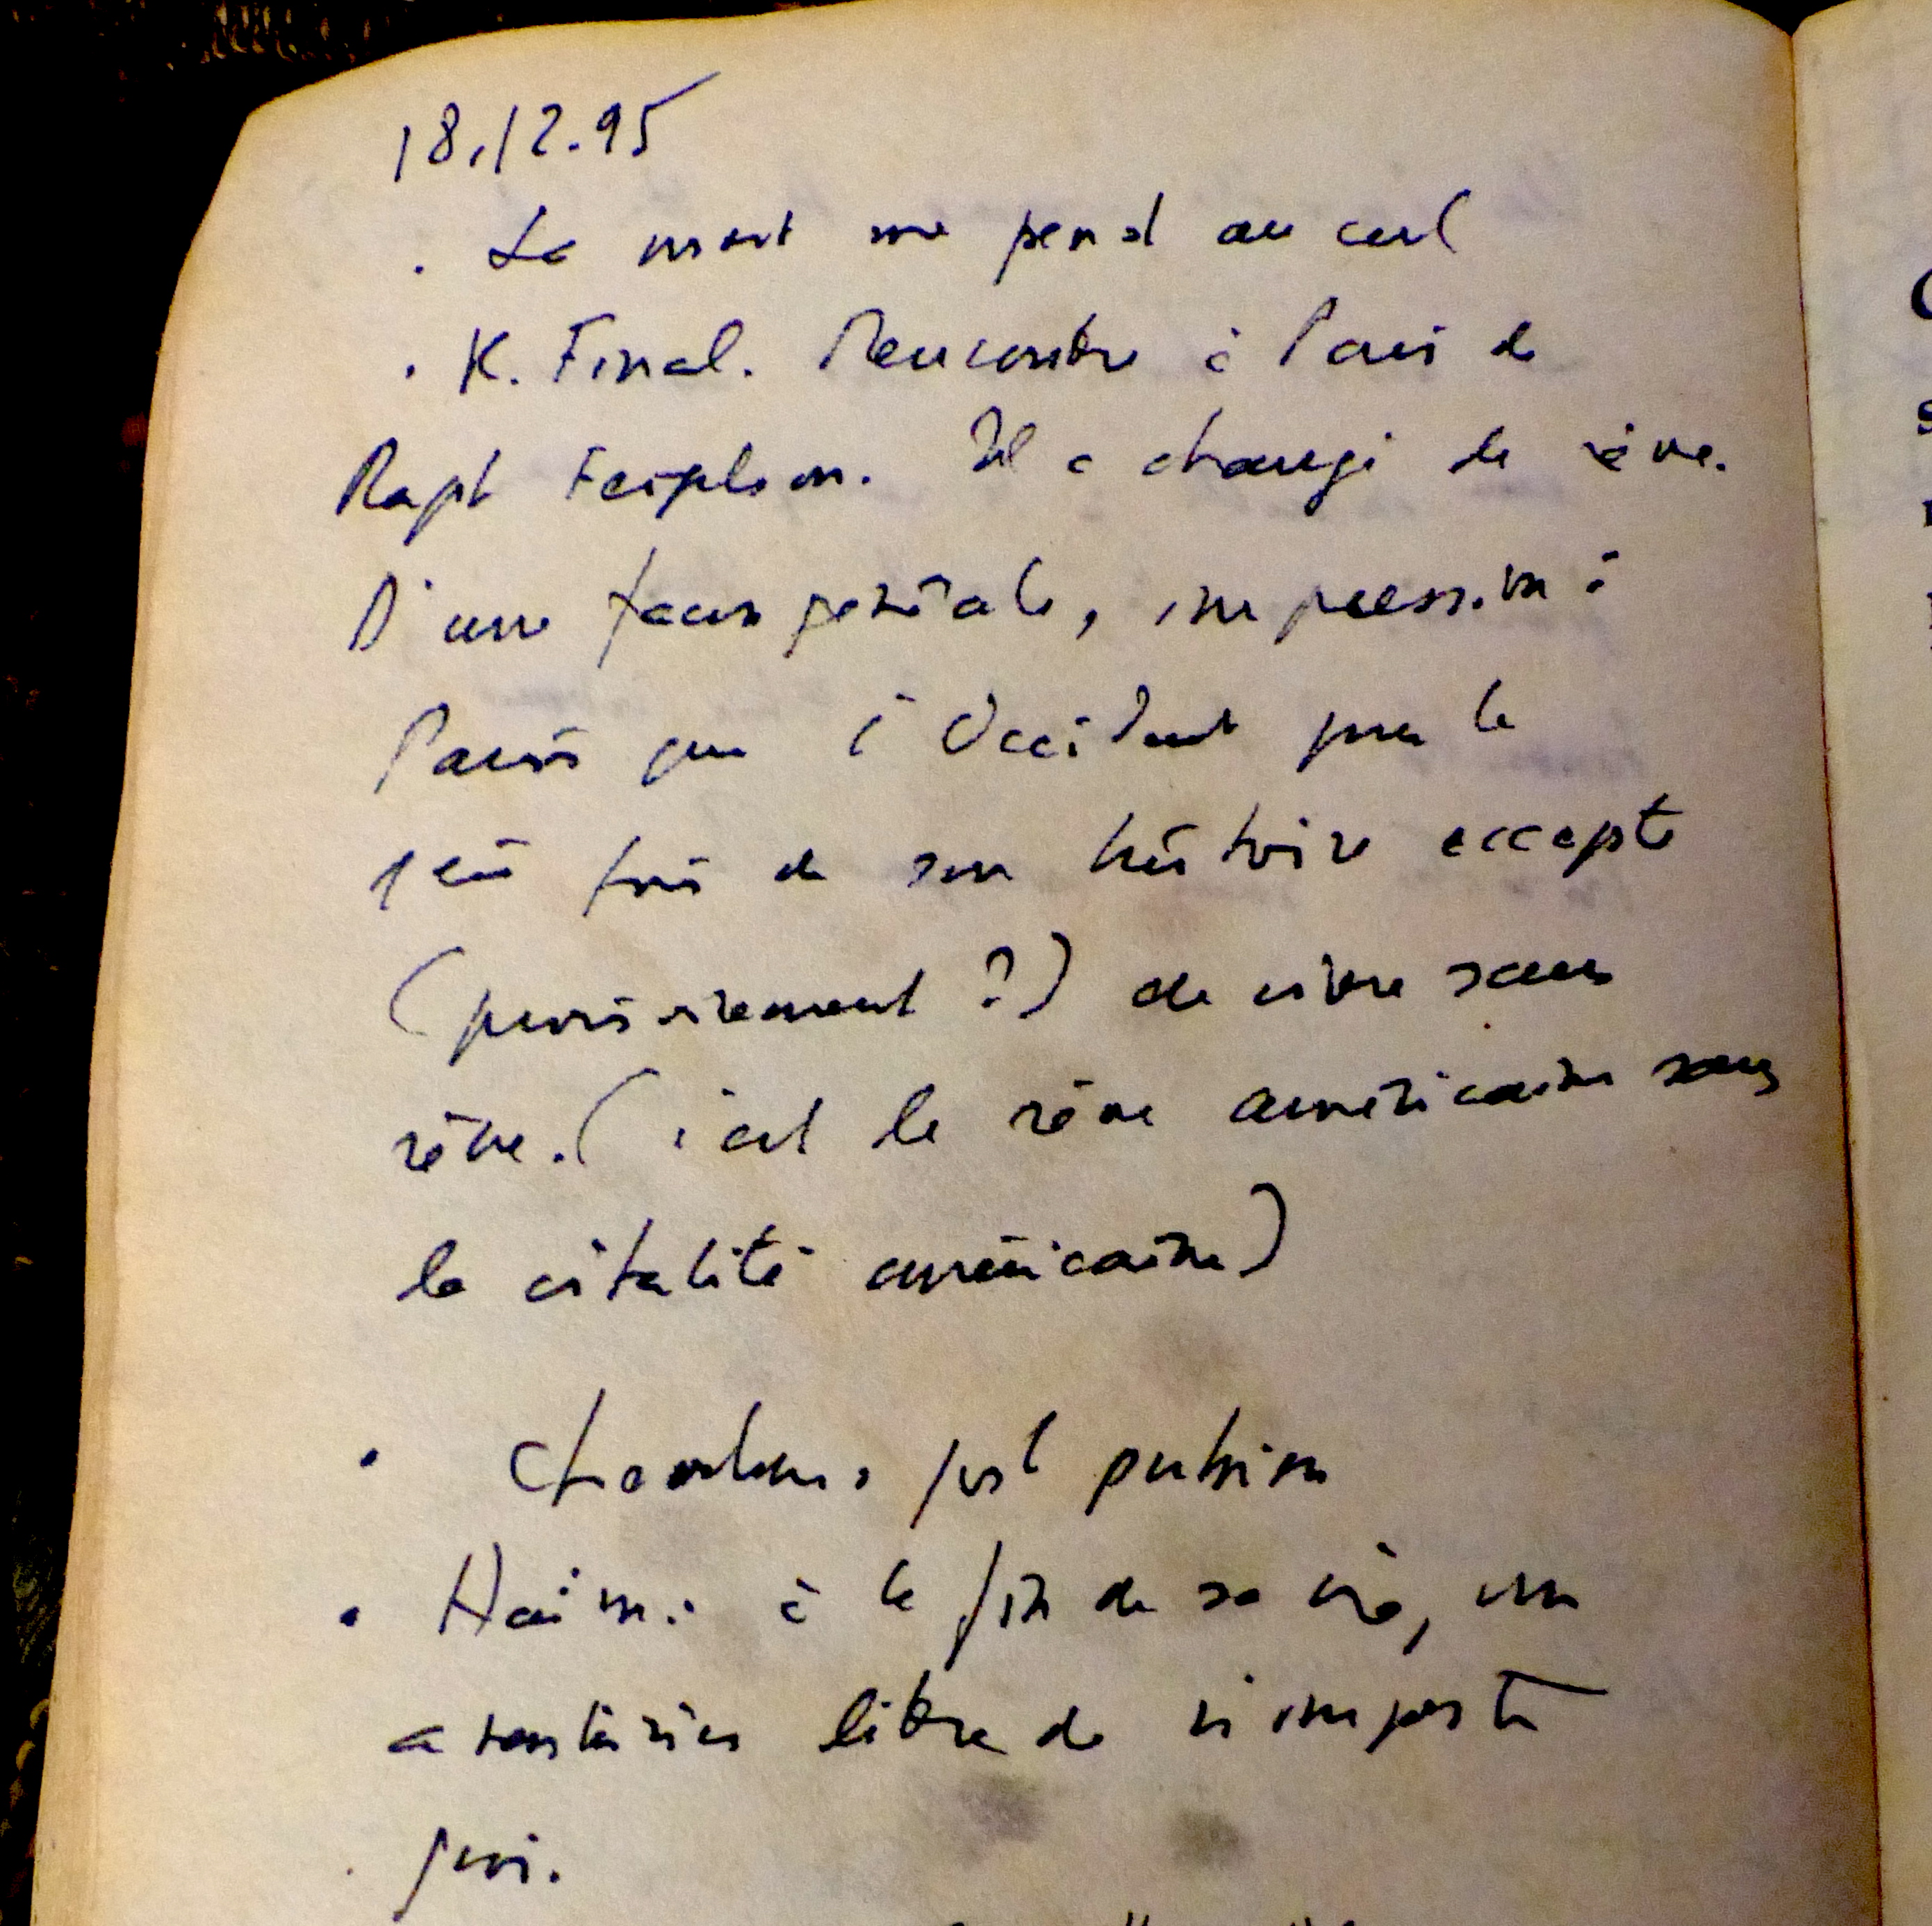 18.12.95
. La mort me pend au cul
. K. Final. Rencontre à Paris de
Raph. Il a changé de rêve.
D'une façon générale, impression à
Paris que l'Occident pour la
1ère fois de son histoire accepte
(provisoirement ?) de vivre sans
rêve. (c'est le rêve américain sans
la vitalité américaine)
. post
. Haïm. à la fin de sa vie, un
libre de n'importe
quoi.